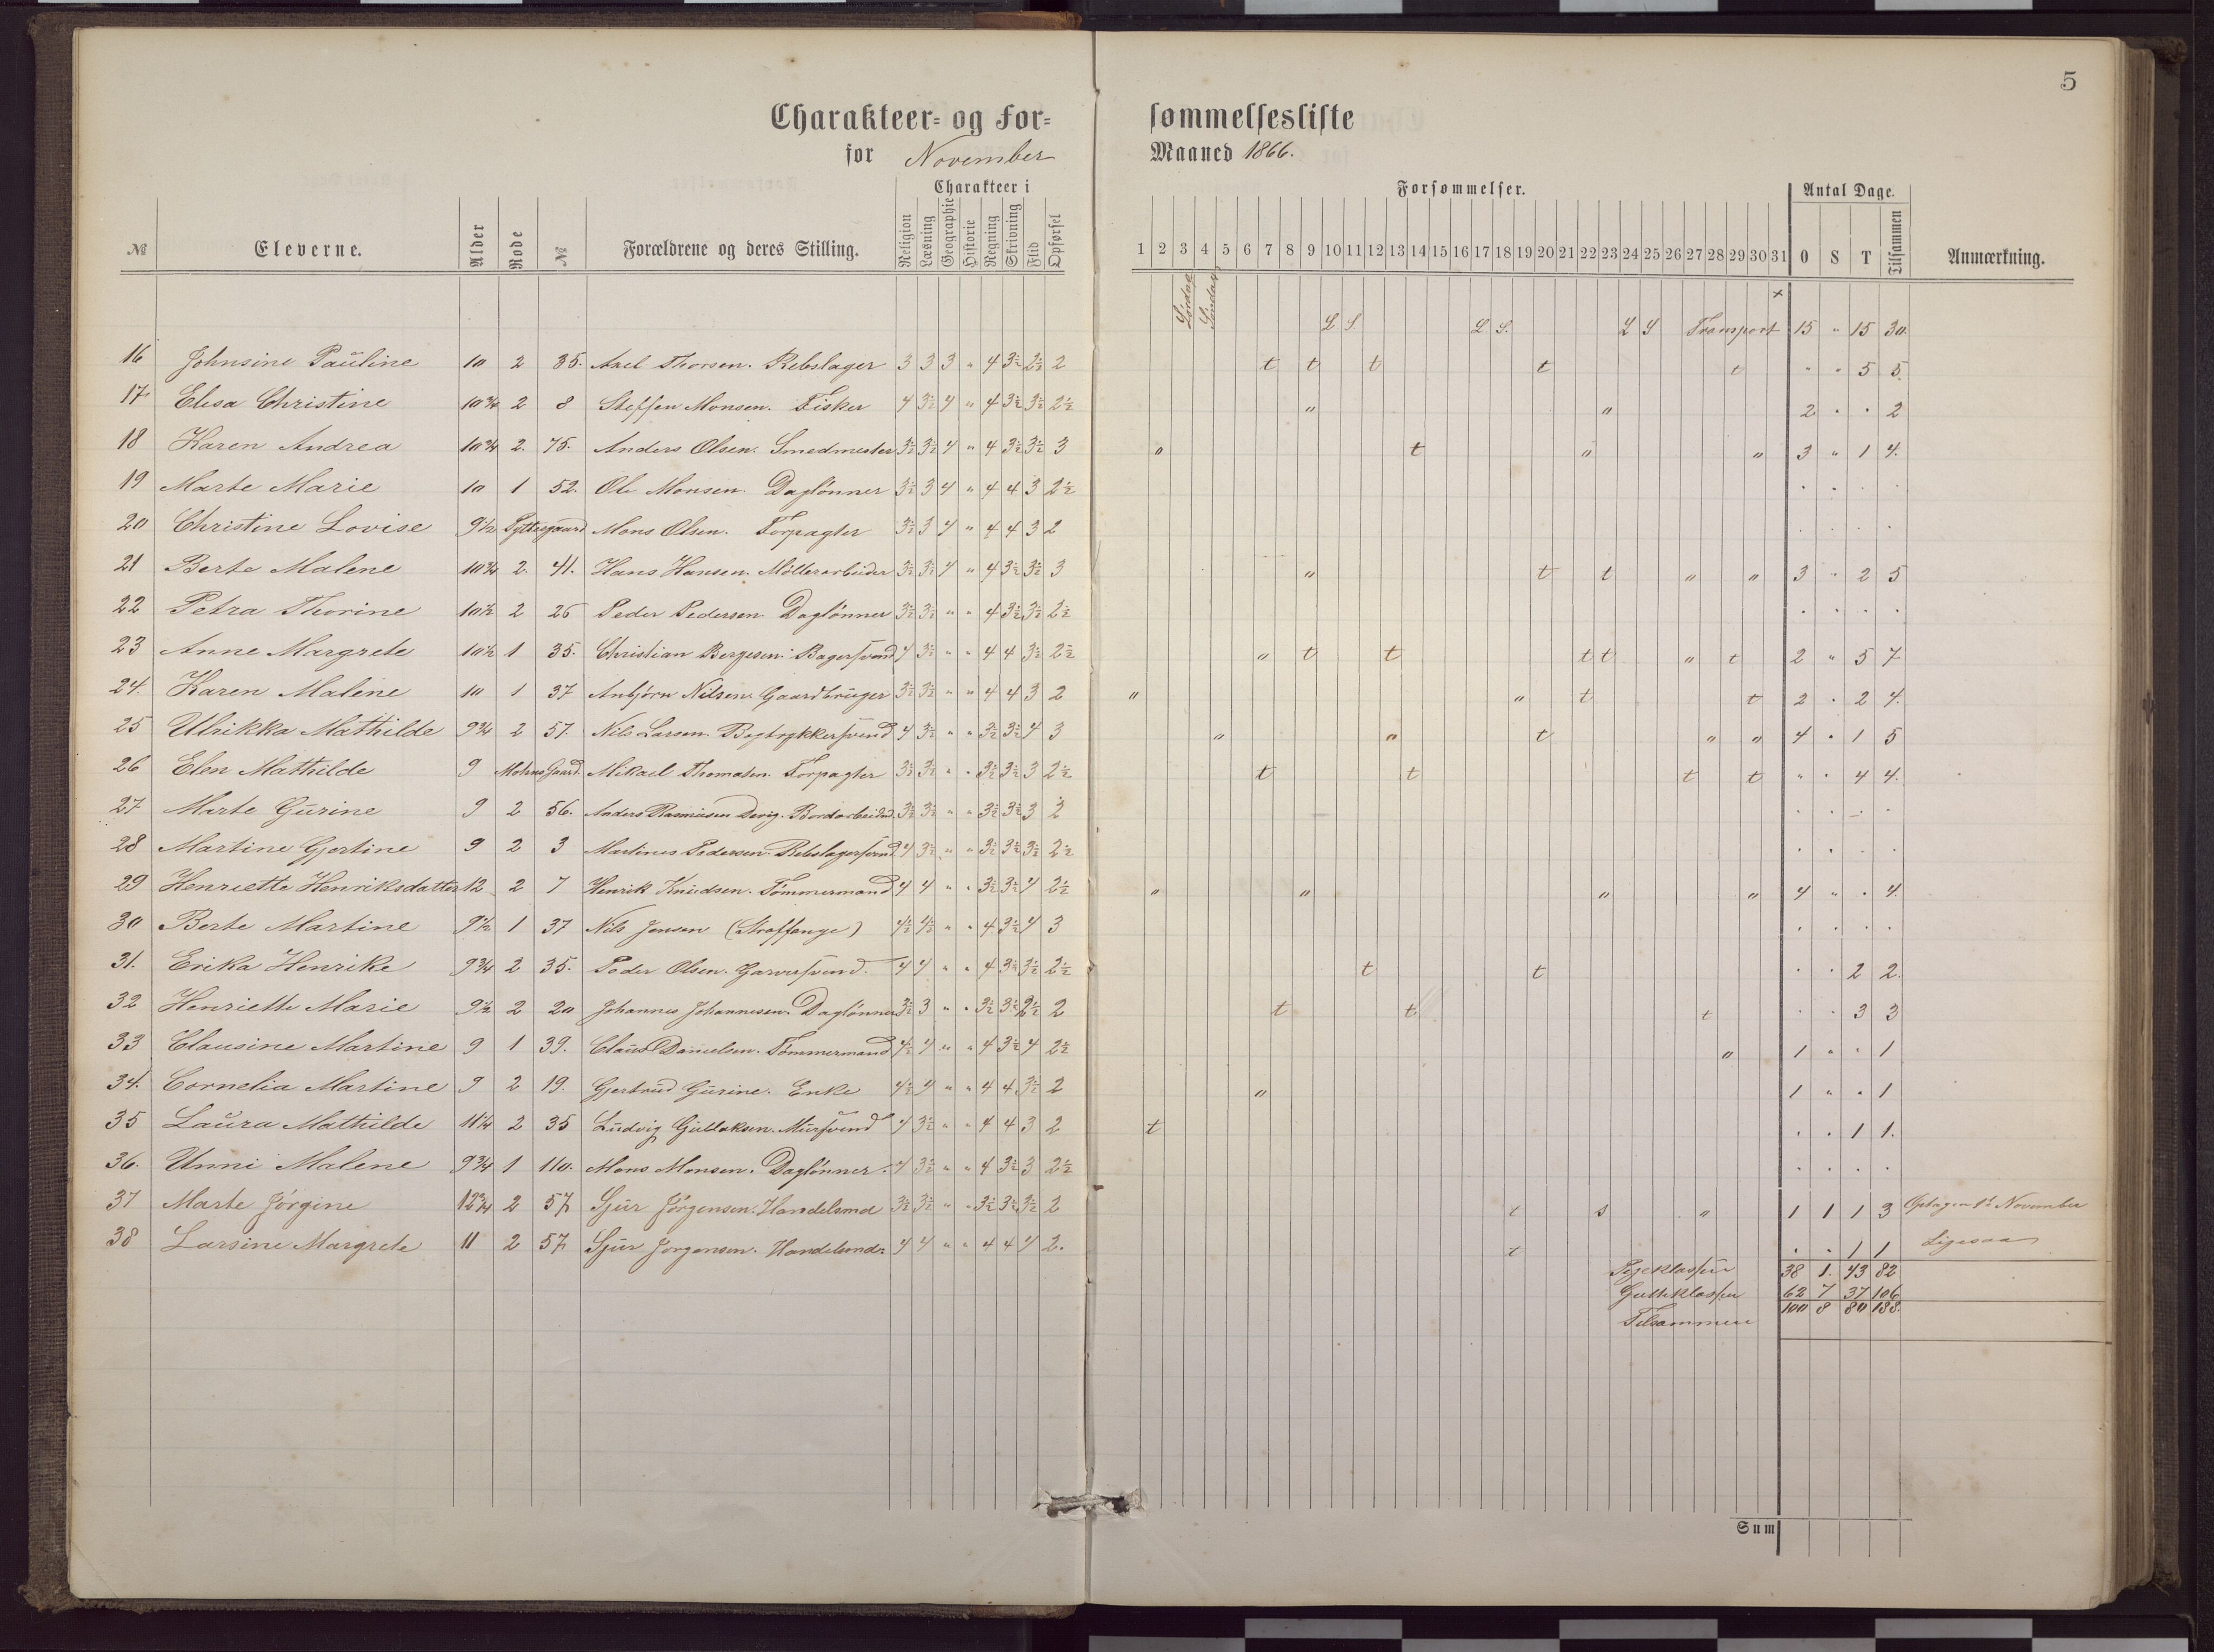 5
Charakteer- og For- sømmelsesliste
for November Maaned 1866.
Charakteer i Forsømmelser. Antal Dage.
№ Eleverne. Alder Rode № Forældrene og deres Stilling. Religion Læsning Geographie Historie Regning Skrivning Flid Opførsel 1 2 3 4 5 6 7 8 9 10 11 12 13 14 15 16 17 18 19 20 21 22 23 24 25 26 27 28 29 30 31 O S T Tilsammen Anmærkning.
Lördag Söndag L S L S. L S Transport 15 " 15 30.
16 Johnsine Pauline 10 2 35. Axel Thorsen. Rebslager 3 3 3 " 4 3½ 2½ 2 t t t t t " " 5 5.
17 Elisa Christine 10¾ 2 8 Steffen Monsen. Fisker 4 3½ 4 " 4 3½ 3½ 2½ " " 2 . . 2
18 Karen Andrea 10¾ 2. 75. Anders Olsen. Smedmester 3½ 3½ 4 " 4 3½ 3½ 3 " t " " 3 " 1 4.
19 Marte Marie 10 1 52. Ole Monsen. Daglönner 3½ 3 4 " 4 4 3 2½ . . . .
20 Christine Lovise 9½ Pyttesgaard Mons Olsen. Forpagter 3½ 3 4 " 4 4 3 2 . . . .
21 Berte Malene 10¾ 2. 41. Hans Hansen. Möllerarbeider 3½ 3½ 4 " 4 3½ 3½ 3 " t t " " 3 " 2 5
22 Petra Thorine 10½ 2 26 Peder Pedersen. Daglönner 3½ 3½ " " 4 3½ 3½ 2½ . . . .
23 Anne Margrete 10½ 1 35. Christian Bergesen. Bagersvend 4 3½ " " 4 4 3½ 2½ " t t t t " t 2 " 5 7
24. Karen Maline 10 1 37 Anbjörn Nilsen. Gaardbruger 3½ 3½ " " 4 4 3 2 " " t t 2 . 2 4.
25 Ulrikka Mathilde 9¾ 2 57. Nils Larsen. Bogtrykkersvend 4 3½ " " 3½ 3½ 4 3 " " t " " 4 . 1 5
26 Elen Mathilde 9 Mohns Gaard. Mikael Thomasen. Forpagter 3½ 3½ " " 3½ 3½ 3 2½ t t t t " . 4 4.
27 Marte Gurine 9 2 56. Anders Rasmussen Devig. Bordarbeider. 3½ 3½ " " 3½ 3½ 3 2 . . . .
28 Martine Gjertine 9 2 3 Martinus Pedersen. Rebslagersvend. 4 3½ " " 3½ 3½ 3½ 2½ . . . .
29 Henriette Henriksdatter 12 2 7 Henrik Knudsen. Tömmermand 4 4 " " 3½ 3½ 4 2½ " " " " 4 " . 4.
30 Berte Martine 9½ 1 37 Nils Jensen (Straffange) 4½ 4½ " " 4 3½ 4 3 . . . .
31. Erika Henrike 9¾ 2 35. Peder Olsen. Garversvend. 4 4 " " 4 3½ 3½ 2½ t t . . 2 2.
32 Henriette Marie 9½ 2 20 Johannes Johannesen. Daglönner 3½ 3 " " 3½ 3½ 2½ 2 t t t . . 3 3
33 Clausine Martine 9 1 39. Claus Danielsen. Tömmermand 4½ 4 " " 4 3½ 4 2½ " 1 " " 1
34. Cornelia Martine 9 2 19. Gjertrud Gurine. Enke 4½ 4 " " 4 4 3½ 2 " 1 " " 1
35 Laura Mathilde 11¼ 2 35 Ludvig Gullaksen. Mursvend 4 3½ " " 4 4 3 2 t . . 1 1.
36. Unni Malene 9¾ 1 110. Mons Monsen. Daglönner. 4 3½ " " 4 3½ 3 2½ . . . .
37 Marte Jörgine 12¾ 2 57 Sjur Jörgensen. Handelsmd 3½ 3½ " " 3½ 3½ 3½ 2 t s " 1 1 1 3 Optagen 1ste November
38 Larsine Margrete 11 2 57 Sjur Jörgensen. Handelsmd. 4 4 " " 4 4 4 2. t . . 1 1 Ligesaa
Pigeklassen 38 1. 43 82
Gutteklassen 62 7 37 106
Tilsammen 100 8 80 188.
Sum